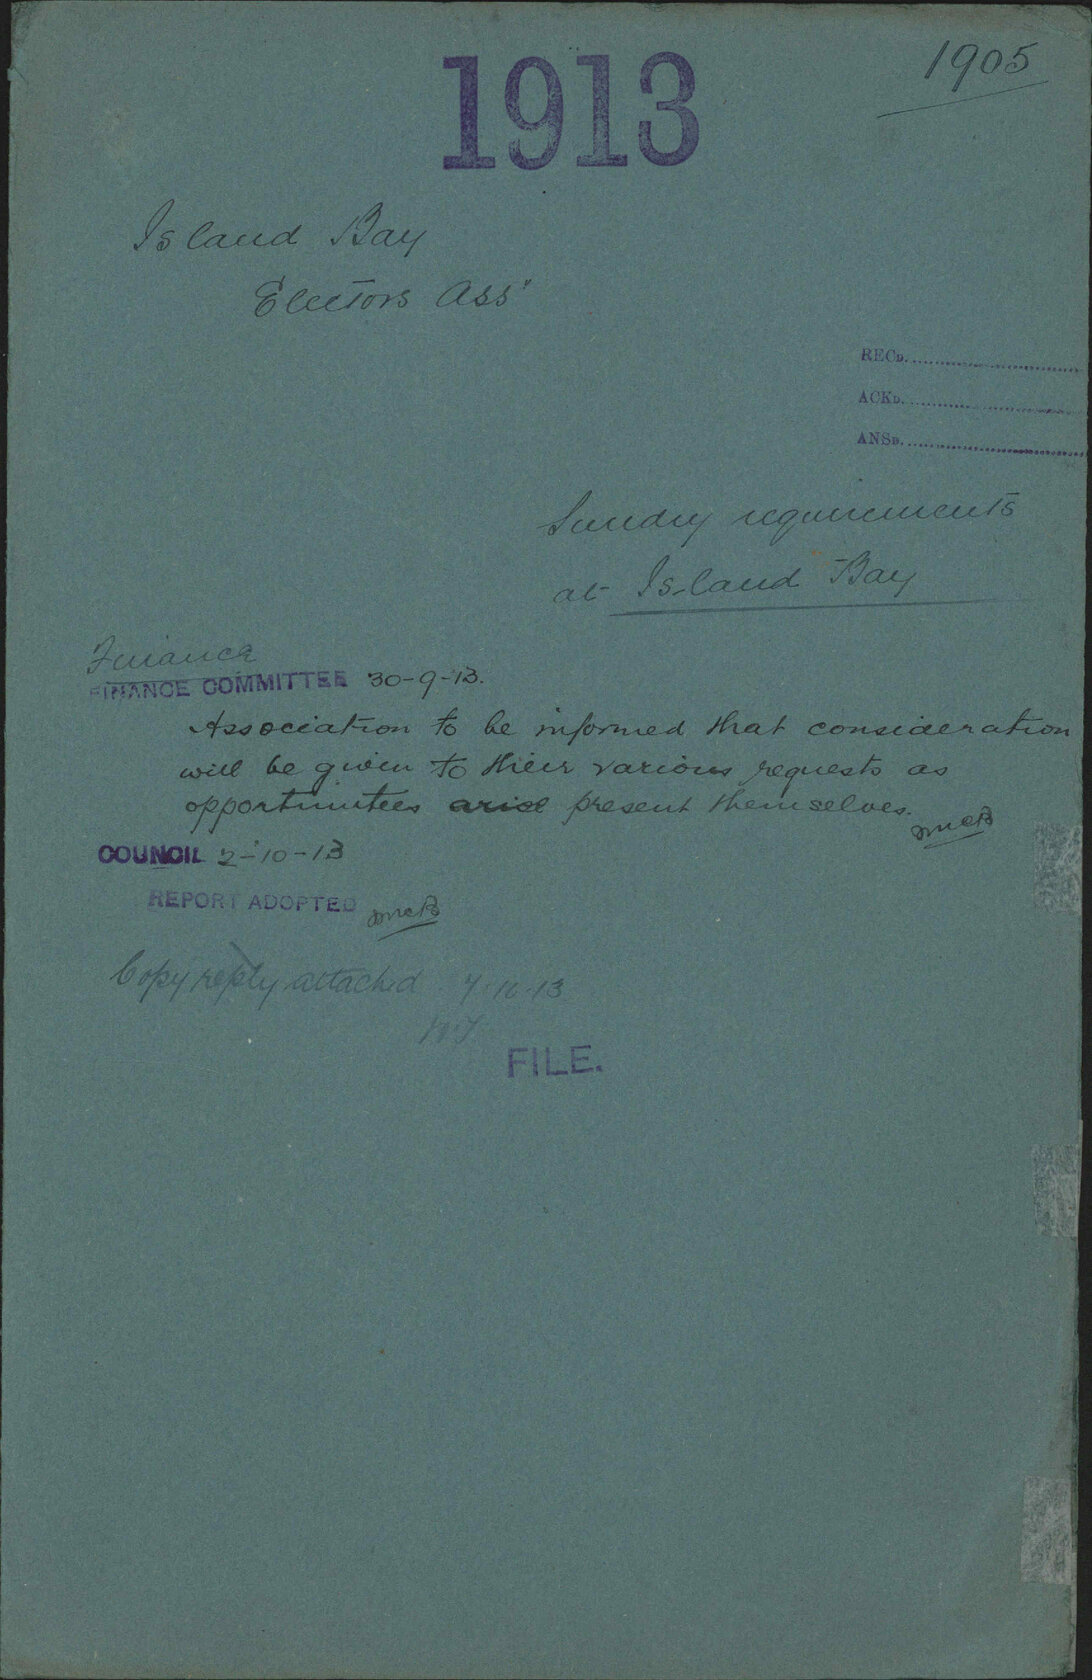 1905
1913
Island Bay
Electors Ass"
RECD.
ACKD.
ANSD.
Sundry requirements
at Island Bay
Finance
FINANCE COMMITTEE 30-9-13.
Association to be informed that consideration
will be given to their various requests as
opportunitees arise present themselves.
COUNCIL 2-10-13
REPORT ADOPTED
Copy reply attached 7.10.13
FILE.